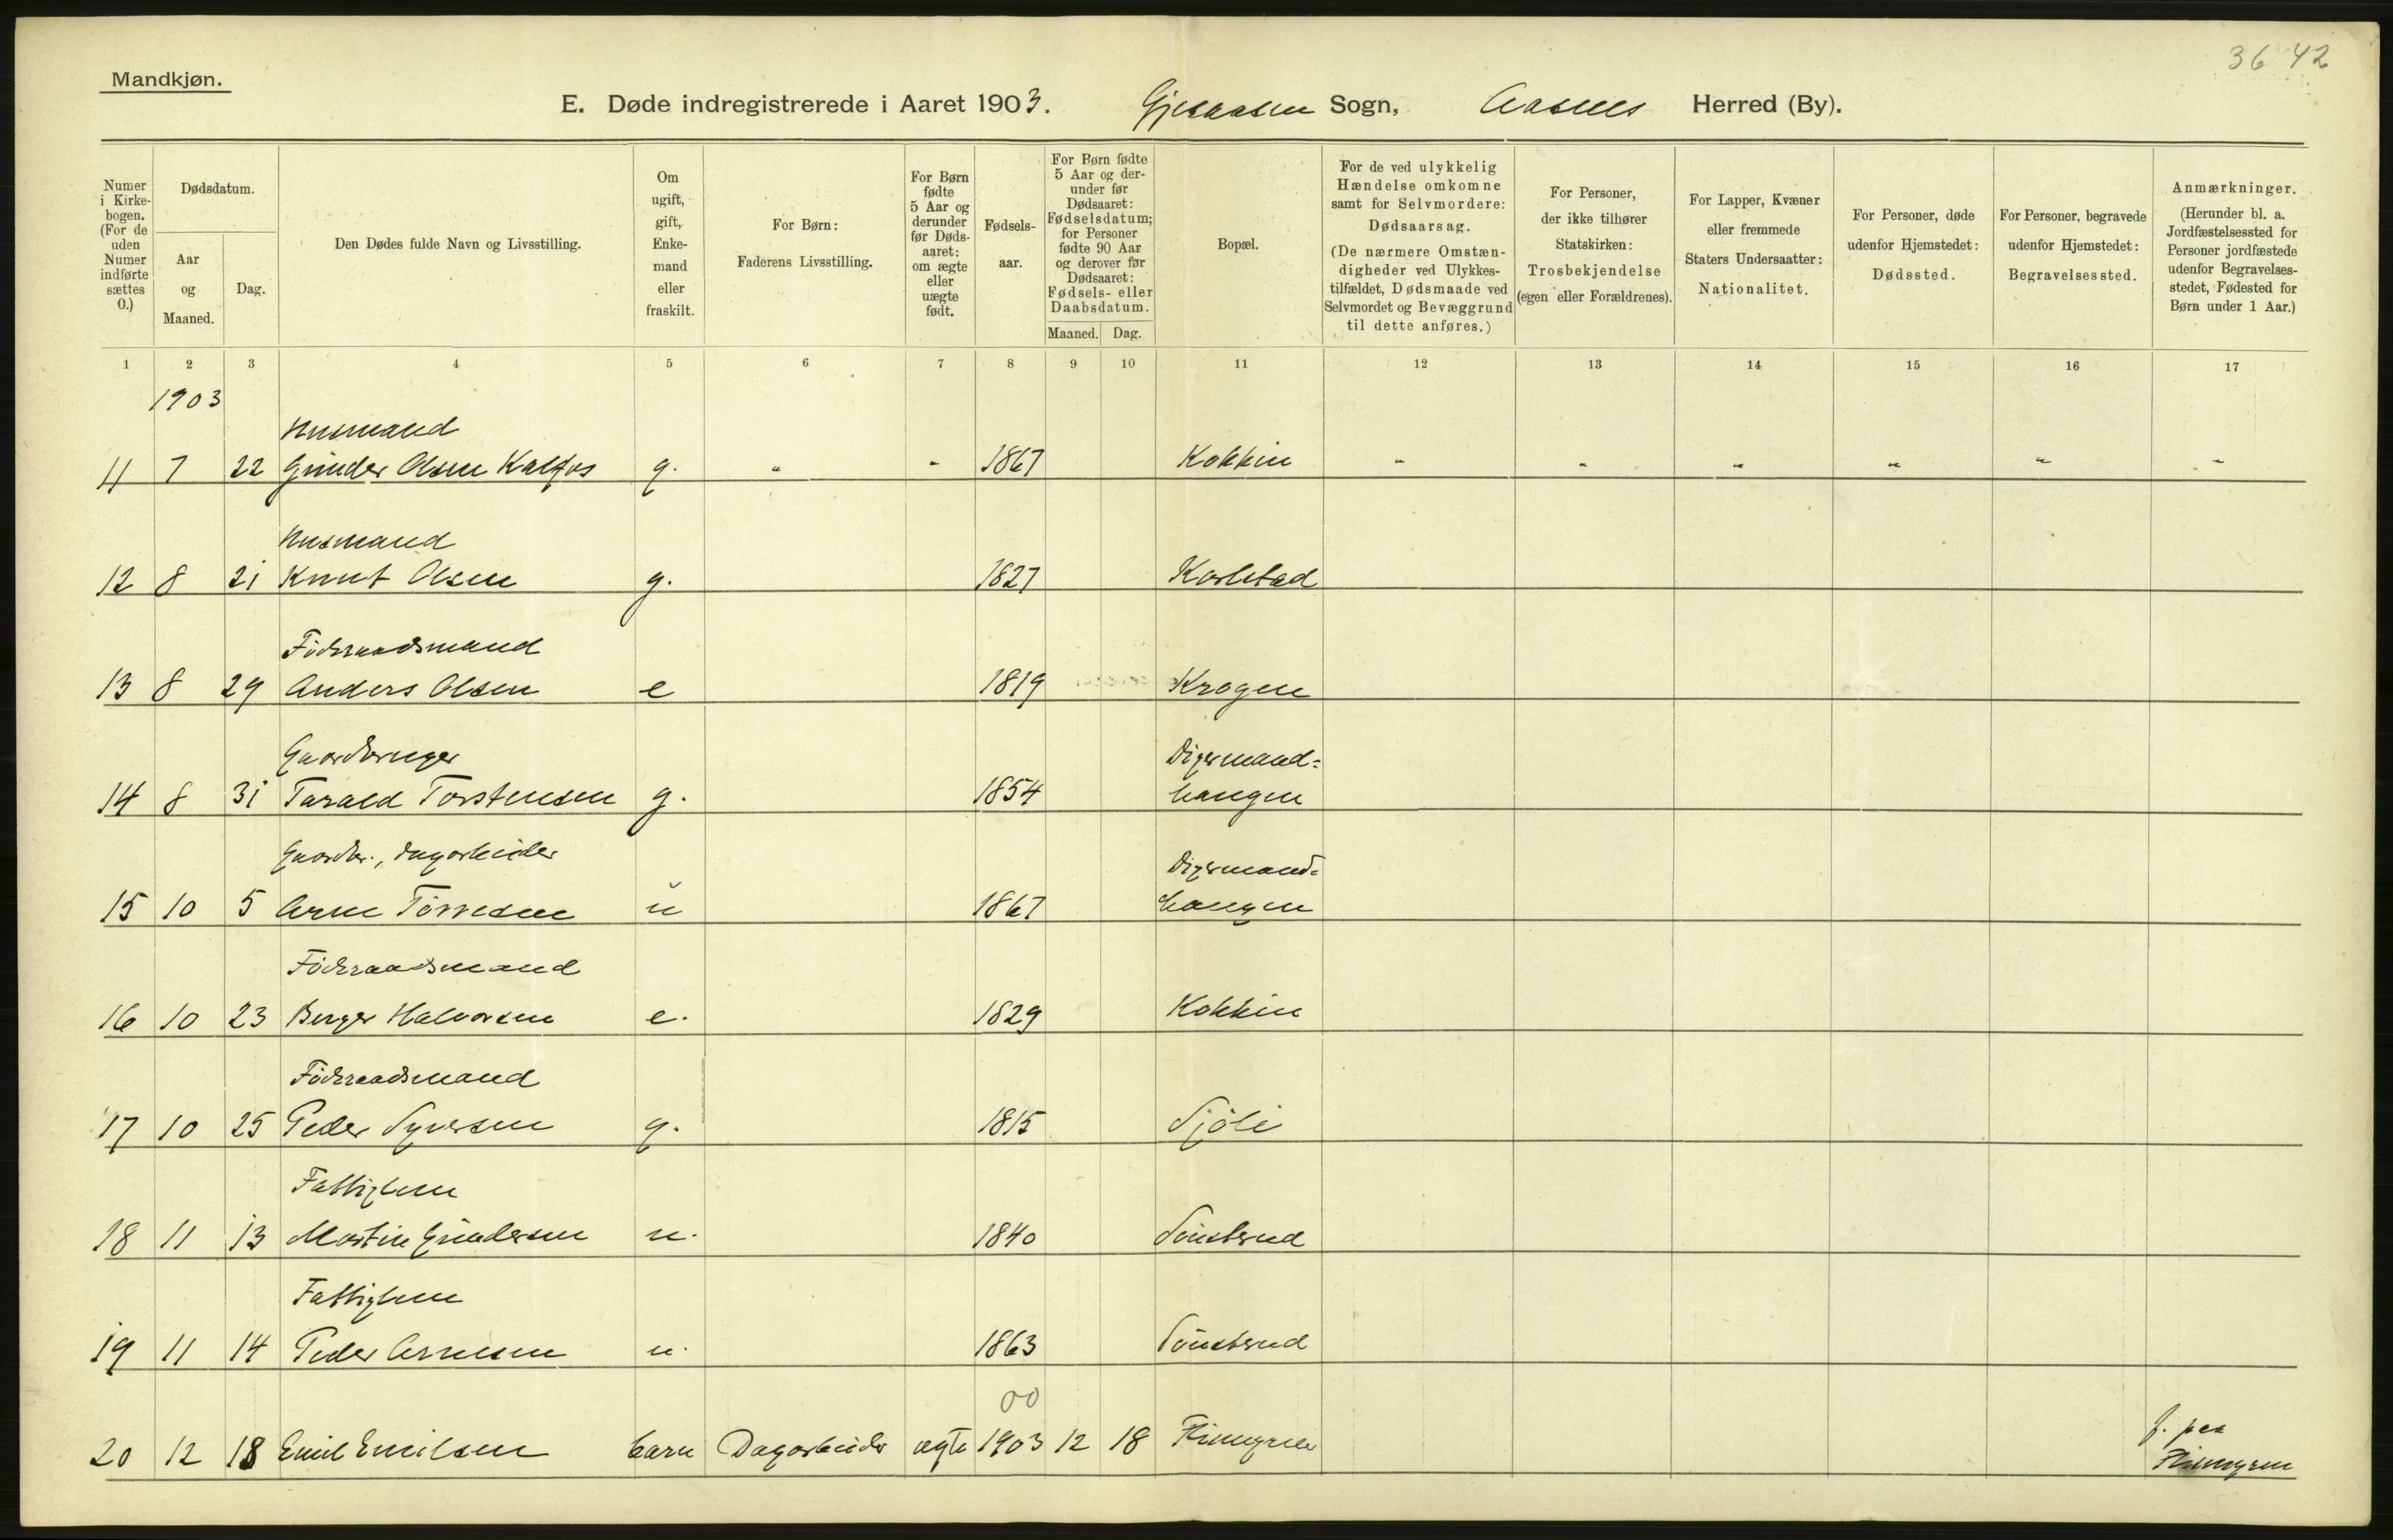 36 42
Mandkjøn.
E. Døde indregistrerede i Aaret 1903. Gjesaasen Sogn, Aasnes Herred (By).
Numer i Kirkebogen. (For de uden Numer indførte sættes 0.)
Dødsdatum.
Aar og Maaned.
Dag.
Den Dødes fulde Navn og Livsstilling.
Om ugift, gift, Enkemand eller fraskilt.
For Børn: Faderens Livsstilling.
For Børn fødte 5 Aar og derunder før Dødsaaret: om ægte eller uægte født.
Fødselsaar.
For Børn fødte 5 Aar og derunder før Dødsaaret: Fødselsdatum; for Personer fødte 90 Aar og derover før Dødsaaret: Fødsels- eller Daabsdatum.
Maaned. Dag.
Bopæl.
For de ved ulykkelig Hændelse omkomne samt for Selvmordere: Dødsaarsag. (De nærmere Omstændigheder ved Ulykkestilfældet, Dødsmaade ved Selvmordet og Bevæggrund til dette anføres.)
For Personer, der ikke tilhører Statskirken: Trosbekjendelse (egen eller Forældrenes).
For Lapper, Kvæner eller fremmede Staters Undersaatter: Nationalitet.
For Personer, døde udenfor Hjemstedet: Dødssted.
For Personer, begravede udenfor Hjemstedet: Begravelsessted.
Anmærkninger. (Herunder bl. a. Jordfæstelsessted for Personer jordfæstede udenfor Begravelsesstedet, Fødested for Børn under 1 Aar.)
1 2 3 4 5 6 7 8 9 10 11 12 13 14 15 16 17
1903
Husmand
11 7 22 Gunder Olsen Kalfos g. " " 1867 Kokkin " " " " " "
Husmand
12 8 21 Knut Olsen g. 1827 Karlstad
Föderaadsmand
13 8 29 Anders Olsen e 1819 Krogen
Gaardbruger Digermand=
14 8 31 Tarald Torstensen g. 1854 hangen
Gaardbr., dagarbeider Digermand=
15 10 5 Arne Törresen u 1867 hangen
Föderaadsmand
16 10 23 Berger Halvorsen e. 1829 Kokkin
Föderaadsmand
17 10 25 Peder Syversen g. 1815 Sjöli
Fattiglem
18 11 13 Martin Gundersen u. 1840 Sönsterud
Fattiglem
19 11 14 Peder Arnesen u. 1863 Sönsterud
00
20 12 18 Emil Emilsen barn Dagarbeider ægte 1903 12 18 f. paa